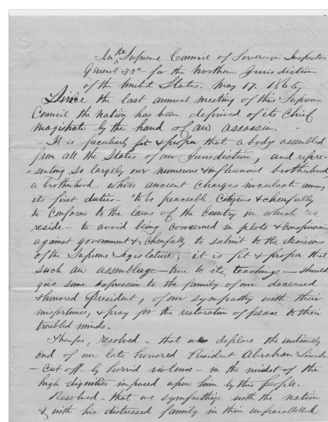 In the Supreme Council of Sovereign Inspectors
General 33° for the Northern Jurisdiction
of the United States. May 17. 1866,
Since the last annual meeting of this Supreme
Council the nation has been deprived of its Chief
Magistrate by the hand of an assassin. -
- It is peculiarly fit & proper that a body assembled
from all the States of our Jurisdiction, and repre-
senting so largely our numerous & influential brotherhood
a brotherhood whose ancient Charges inculcate among
its first duties - to be peaceable Citizens & cheerfully
to conform to the laws of the Country in which we
reside - to avoid being concerned in plots & conspiracies
against government & cheerfully to submit to the decisions
of the Supreme Legislature; it is fit & proper that
such an assemblage - true to its teachings - should
give some expression to the family of our deceased
& honored President, of our sympathy with their
misfortunes, & pray for the restoration of peace to their
troubled minds.
Therefore, resolved - that we deplore the untimely
end of our late honored President Abraham Lincoln
- cut off by horrid violence - in the midst of the
high dignities imposed upon him by this people.
Resolved - that we sympathize with the nation
& with his distressed family in their unparalleled